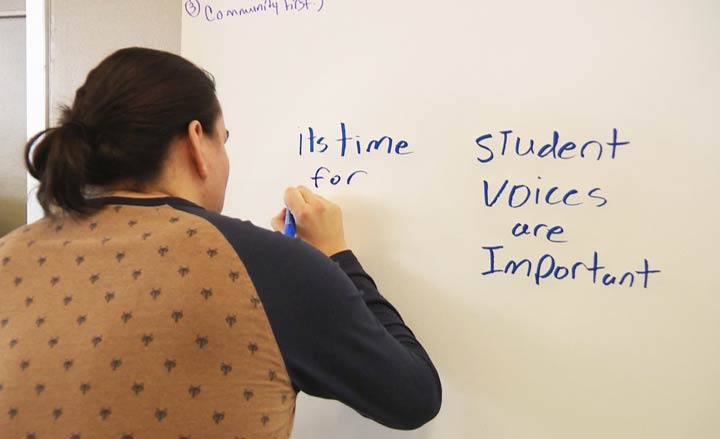 ③ Community first.)
its time
for
Student
Voices
are
Important